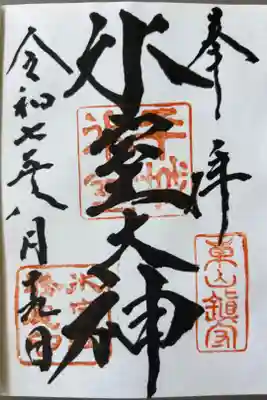 奉拝
東山鎮守
氷室大神
平城
氷室
令和七年八月十九日